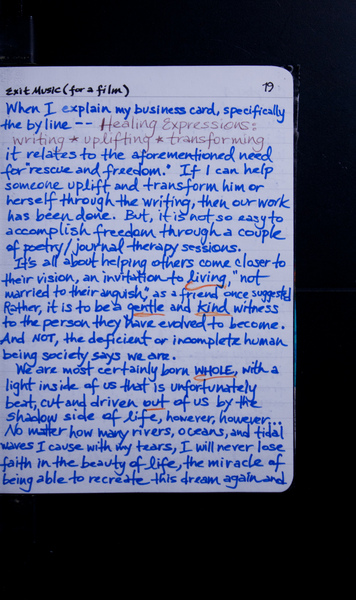 Exit Music (for a film) 19
When I explain my business card, specifically
the by line -- Healing Expressions:
writing * uplifting * transforming
it relates to the aforementioned need
for "rescue and freedom." If I can help
someone uplift and transform him or
herself through the writing, then our work
has been done. But, it is not so easy to
accomplish freedom through a couple
of poetry/journal therapy sessions.
It's all about helping others come closer to
their vision, an invitation to living, "not
married to their anguish," as a friend once suggested
Rather, it is to be a gentle and kind witness
to the person they have evolved to become.
And NOT, the deficient or incomplete human
being society says we are.
We are most certainly born WHOLE, with a
light inside of us that is unfortunately
beat, cut and driven out of us by the
shadow side of life, however, however...
No matter how many rivers, oceans, and tidal
waves I cause with my tears, I will never lose
faith in the beauty of life, the miracle of
being able to recreate this dream again and